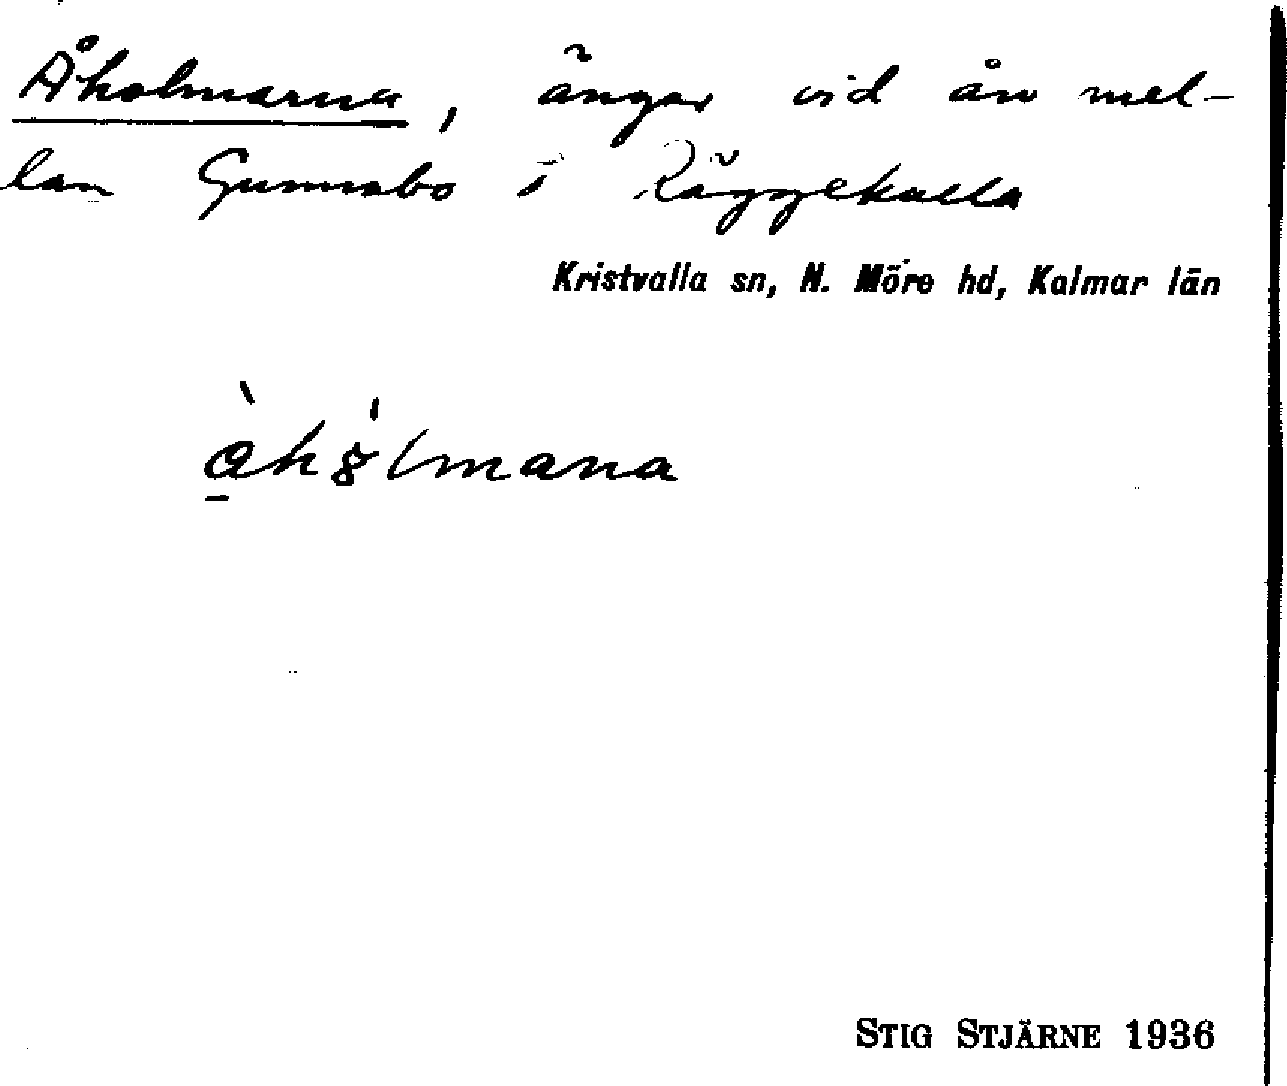 Åholmarna, ängar vid ån mel-
lan Gunnabo i Räggekulla
Kristvalla sn, N. Möre hd, Kalmar län
Stig Stjärne 1936